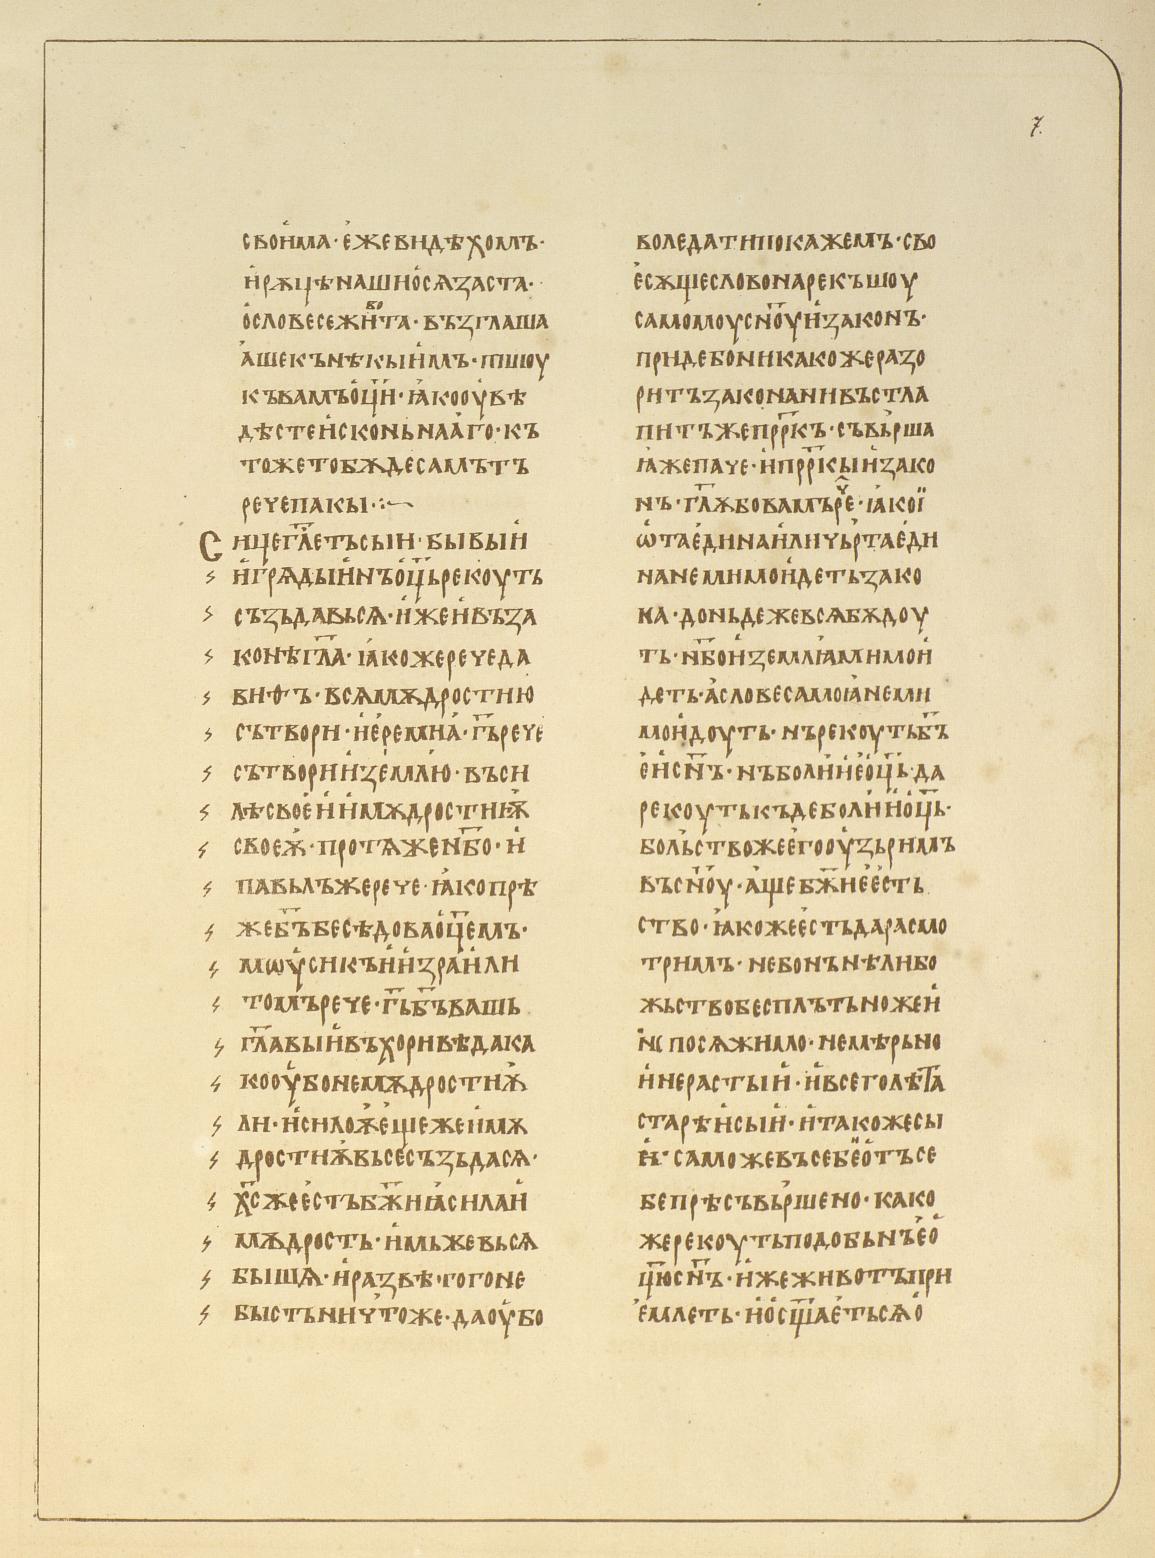 7.
своима· ежевидѣхомъ·
ирѫцѣнашиосѧзаста·
ословесежи
во
та· възглаша
ашекънѣкыимъ· пишоу
къвамъоц҃и· ꙗкооувѣ
дѣстеисконьнааго· къ
тожетобѫдесамътъ
речепакы·
Сицегл҃етьсыи· бывыи
игрѧдыиинъоц҃ьрекоуть
съзъдавъсѧ· ижеивъза
конѣгл҃а· ꙗкожеречеда
видъ· всѧмѫдростию
сътвори· иеремиꙗ· г҃ърече
сътвориизємлю· въси
лѣсвоеиимѫдростиѭ
своеѫ· протѧженб҃о· и
павьлъжерече· ꙗкопрѣ
жеб҃ъбесѣдоваоц҃емъ·
мѡусикъиизраили
томърече· г҃ьб҃ъвашь
гл҃авыивъхоривѣдака
кооубонемѫдростиѫ
ли· исилоѫещежеимѫ
дростиѫвьсесъзъдасѧ·
х҃сжеестъбж҃иꙗсилаи
мѫдрость· имьжевьсѧ
бышѧ· иразвѣтогоне
быстъничтоже· даоубо
воледатипокажемъ· сво
есѫщесловонарекъшоу
самомоусн҃оуизаконъ·
придебоникакожеразо
ритъзаконанивъстла
питъжепрр҃къ· съвьрша
ꙗжепаче· ипрр҃кыизако
нъ· гл҃ѫбовамърече· ꙗкої
ѡтаединаиличьртаеди
нанемимоидетьзако
на· доньдежевсѧбѫдоу
ть· нб҃оиземлꙗмимои
деть· асловесамоꙗнеми
моидоуть· нърекоутьб҃ъ
еисн҃ъ· нъболииеоц҃ь· да
рекоутькъдеболииоц҃ь·
больствожеегооузьримъ
въсн҃оу· ащебж҃иеесть
ство· ꙗкожеестьдарасмо
тримъ· небонънѣлибо
жьствобесплътьножеи
ис посѧжимо· немѣрьно
инерастыи· ивсеголѣта
старѣисыи· итакожесы
и· саможевъсебеотъсе
бепрѣсъвьршено· како
жерекоутьподобьнъео
ц҃юсн҃ъ· ижеживотъпри
емлеть· иосщ҃аетьсѧо